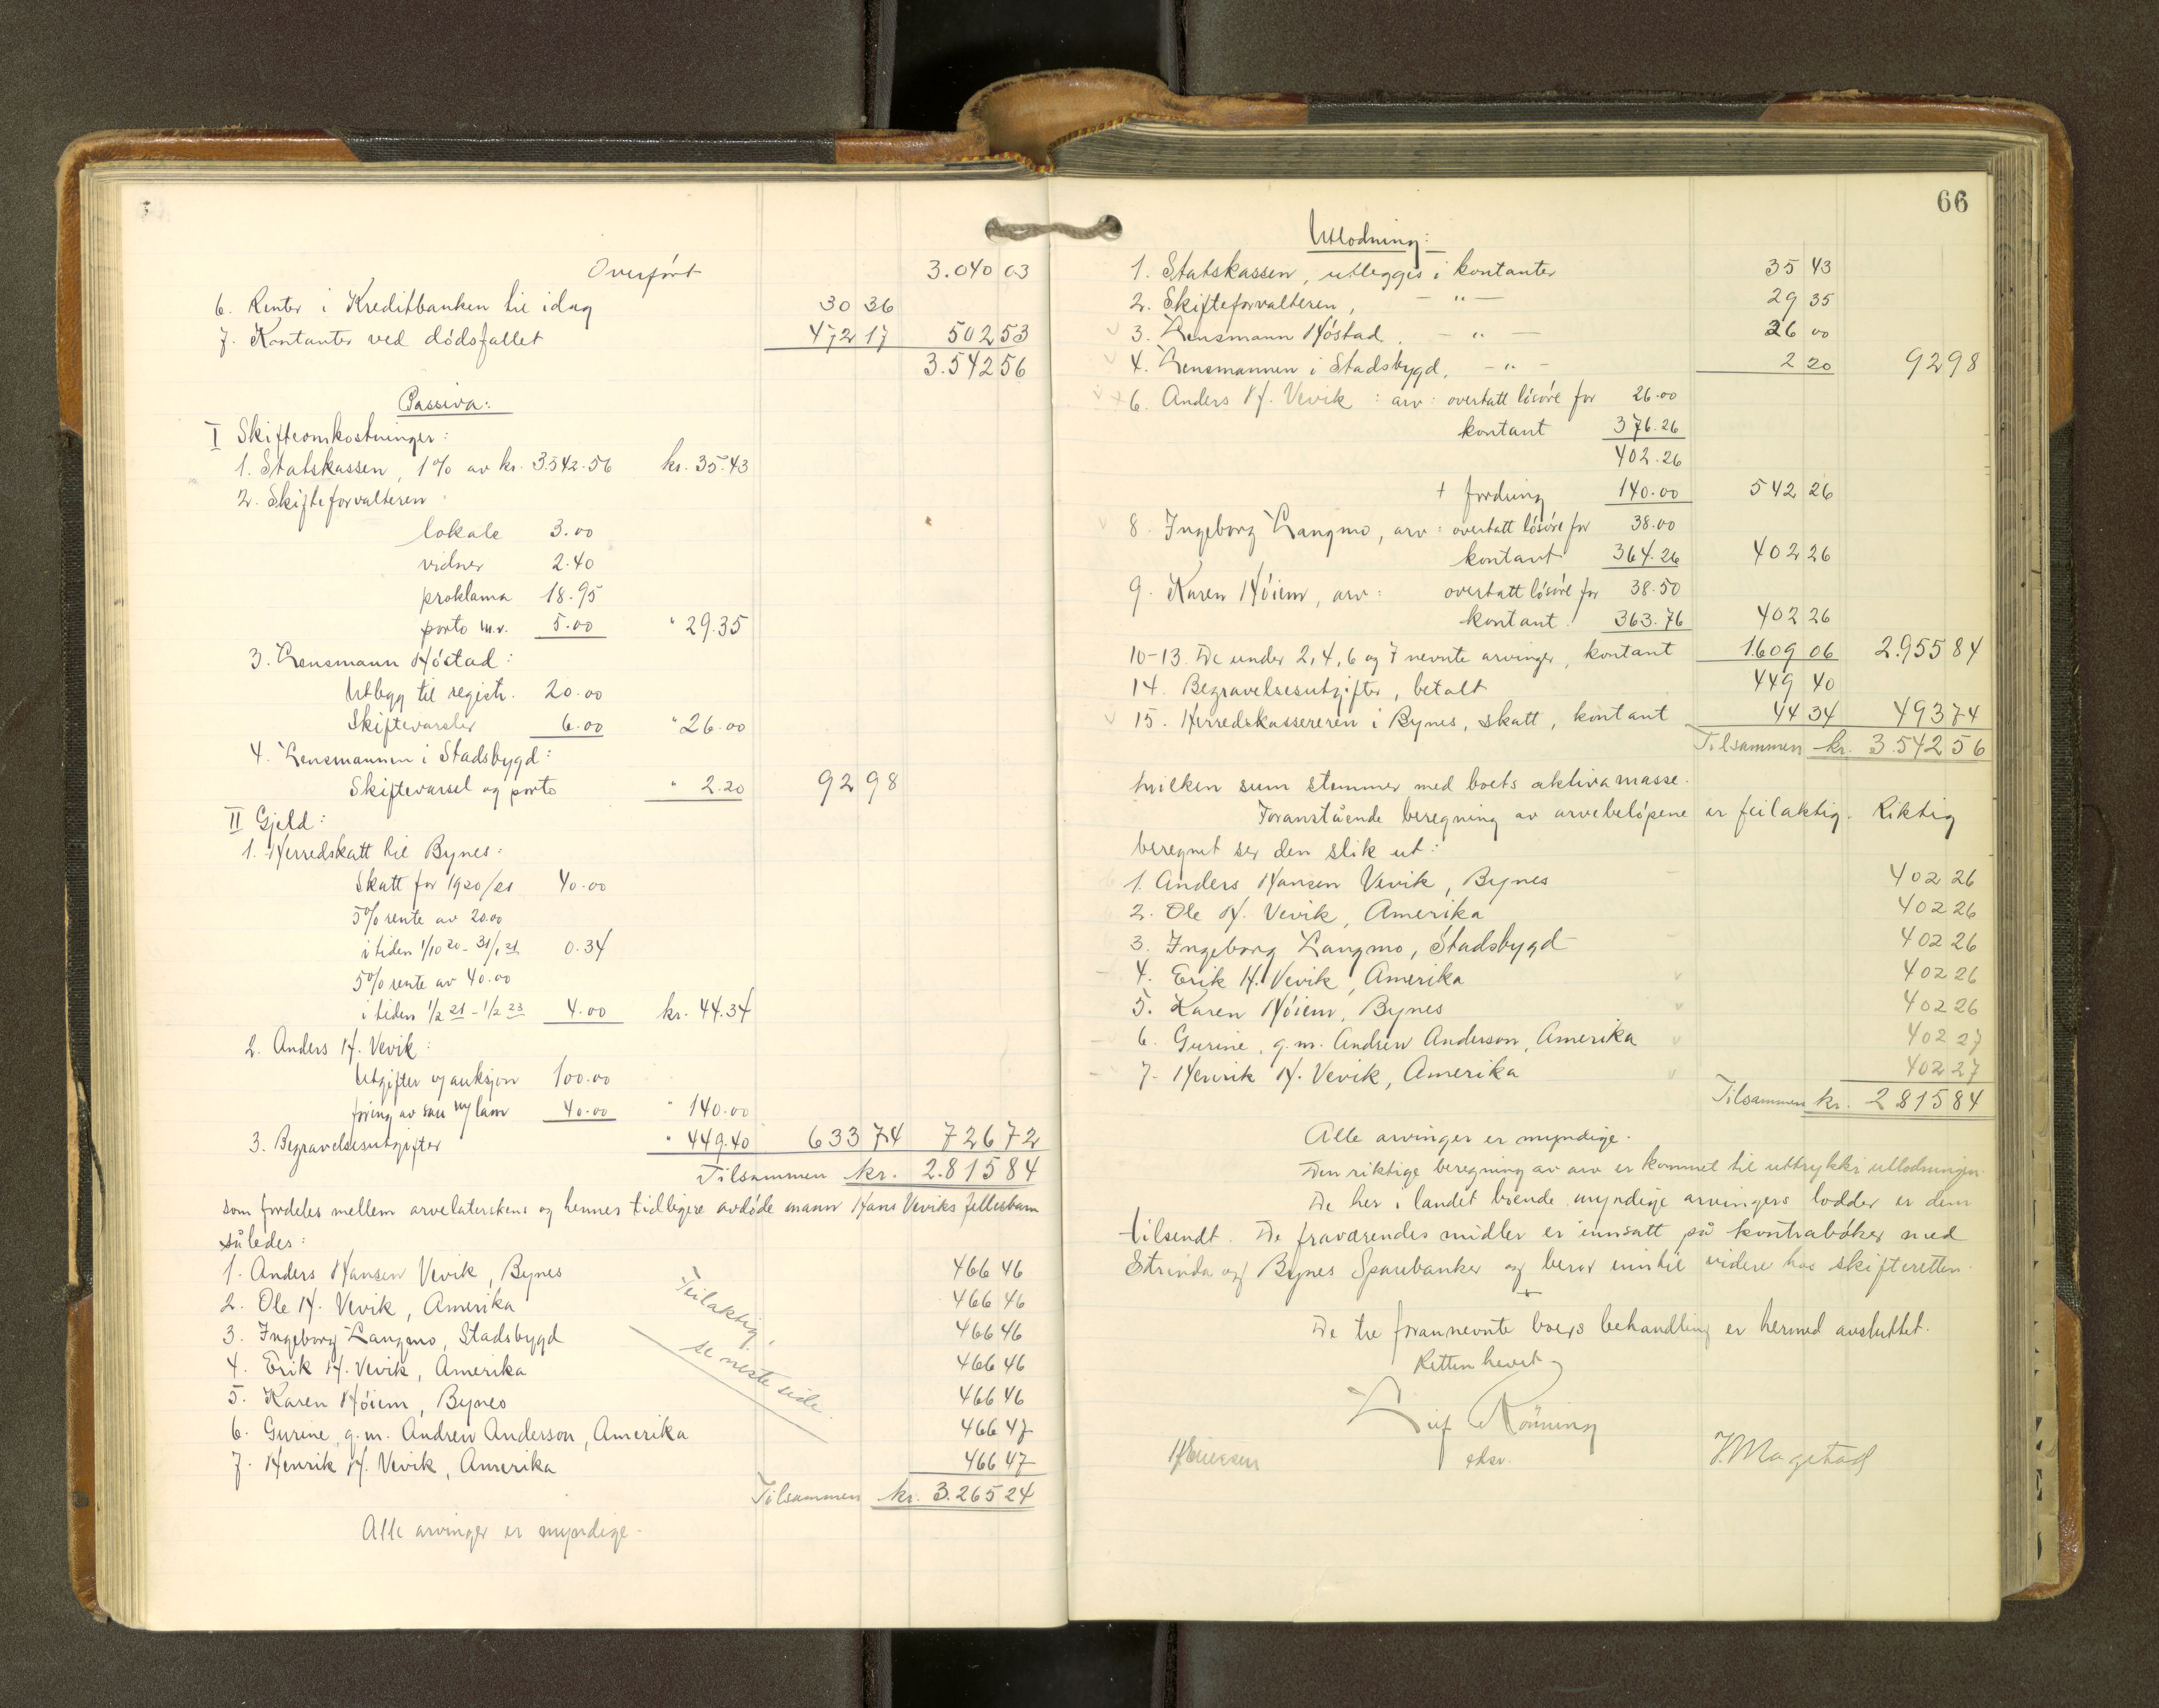 Overført 3.040 03
6. Renter i Kreditbanken til idag 30 36
7. Kontanter ved dødsfallet 472 17 502 53
3.542 56
Passiva:
I Skifteomkostninger:
1. Statskassen, 1% av kr. 3542.56 kr. 35.43
2. Skifteforvalteren
lokale 3.00
vidner 2.40
proklama 18.95
porto m.v. 5.00 " 29.35
3. Lensmann Høstad:
Utlegg til registr. 20.00
Skiftevarsler 6.00 " 26.00
4. Lensmannen i Stadsbygd:
Skiftevarsel og porto " 2.20 92 98
II Gjeld:
1. Herredskatt til Bynes:
Skatt for 1920/21 40.00
5% rente av 20.00
i tiden 1/10 20 - 31/1 21 0.34
5% rente av 40.00
i tiden 1/2 21 - 1/2 23 4.00 kr. 44.34
2. Anders H. Vevik:
Utgifter v/ auksjon 100.00
foring av sau og lam 40.00 " 140.00
3. Begravelsesutgifter " 449.40 633 74 726 72
Tilsammen kr. 2.815 84
som fordeles mellem arvelaterskens og hennes tidligere avdøde mann Hans Veviks fellesbarn
således:
1. Anders Hansen Vevik, Bynes 466 46
2. Ole H. Vevik, Amerika 466 46
3. Ingeborg Langmo, Stadsbygd 466 46
4. Erik H. Vevik, Amerika 466 46
5. Karen Høiem, Bynes 466 46
6. Gurine, g.m. Andrew Anderson, Amerika 466 47
7. Henrik H. Vevik, Amerika 466 47
Feilaktig!
se neste side.
Tilsammen kr. 3.265 24
Alle arvinger er myndige.
66
Utlodning:
1. Statskassen, utlegges i kontanter 35 43
2. Skifteforvalteren, - " - 29 35
3. Lensmann Høstad, - " - 26 00
4. Lensmannen i Stadsbygd, - " - 2 20 92 98
6. Anders H. Vevik: arv: overtatt løsøre for 26.00
kontant 376.26
402.26
+ fordring 140.00 542 26
8. Ingeborg Langmo, arv: overtatt løsøre for 38.00
kontant 364.26 402 26
9. Karen Høiem, arv: overtatt løsøre for 38.50
kontant 363.76 402 26
10-13. De under 2, 4, 6 og 7 nevnte arvinger, kontant 1.609 06 2.955 84
14. Begravelsesutgifter, betalt 449 40
15. Herredskassereren i Bynes, skatt, kontant 44 34 493 74
Tilsammen kr. 3.542 56
hvilken sum stemmer med boets aktivamasse.
Foranstående beregning av arvebeløpene er feilaktig. Riktig
beregnet ser den slik ut:
1. Anders Hansen Vevik, Bynes 402 26
2. Ole H. Vevik, Amerika 402 26
3. Ingeborg Langmo, Stadsbygd 402 26
4. Erik H. Vevik, Amerika 402 26
5. Karen Høiem, Bynes 402 26
6. Gurine, g.m. Andrew Anderson, Amerika 402 27
7. Henrik H. Vevik, Amerika 402 27
Tilsammen kr. 2815 84
Alle arvinger er myndige.
Den riktige beregning av arv er kommet til uttrykk i utlodningen.
De her i landet boende myndige arvingers lodder er dem
tilsendt. De fraværendes midler er innsatt på kontrabøker med
Strinda og Bynes Sparebanker og beror inntil videre hos skifteretten.
De tre forannevnte boers behandling er hermed avsluttet.
Retten hevet
Leif Rønning
eksr.
J. Magstad